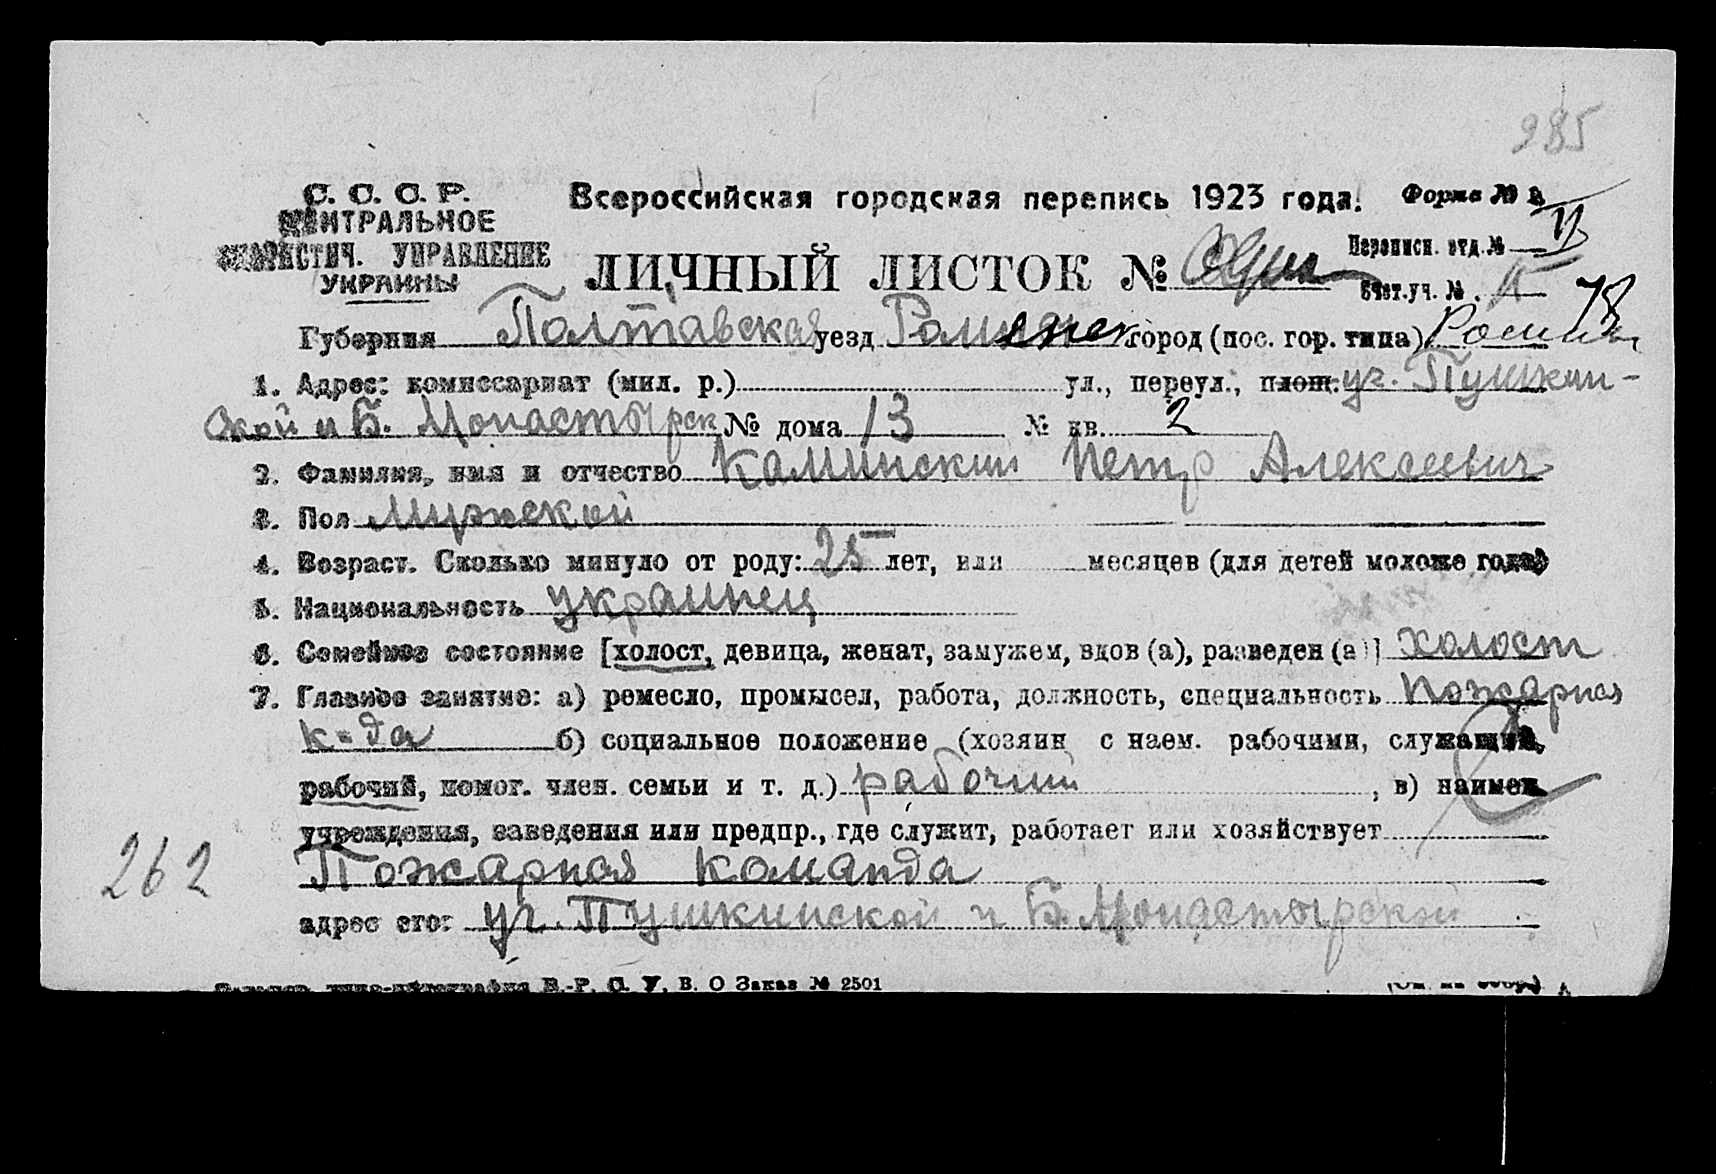 985
С. С. С. Р.
ЦЕНТРАЛЬНОЕ
СТАТИСТИЧ. УПРАВЛЕНИЕ
УКРАИНЫ
Всероссийская городская перепись 1923 года.
Форма № 2
Переписн. отд. № II
ЛИЧНЫЙ ЛИСТОК №
Счет.уч. № II 78
Губерния Полтавская уезд Роменск город (пос. гор. типа) Ромны
1. Адрес: комиссариат (мил. р.) ул., переул., площ. уг. Пушкин-
ской и Б. Монастырск № дома 13 № кв. 2
2. Фамилия, имя и отчество Каминский Петр Алексеевич
3. Пол Мужской
4. Возраст. Сколько минуло от роду: 25 лет, или месяцев (для детей моложе года)
5. Национальность украинец
6. Семейное состояние [холост, девица, женат, замужем, вдов (а), разведен (а)] холост
7. Главное занятие: а) ремесло, промысел, работа, должность, специальность Пожарная
к-да б) социальное положение (хозяин с наем. рабочими, служащий,
рабочий, помог. член. семьи и т. д.) рабочий, в) наимен.
учреждения, заведения или предпр., где служит, работает или хозяйствует
262
Пожарная команда
адрес его: уг. Пушкинской и Б. Монастырской
В.-Р. С. У. В. О Заказ № 2501